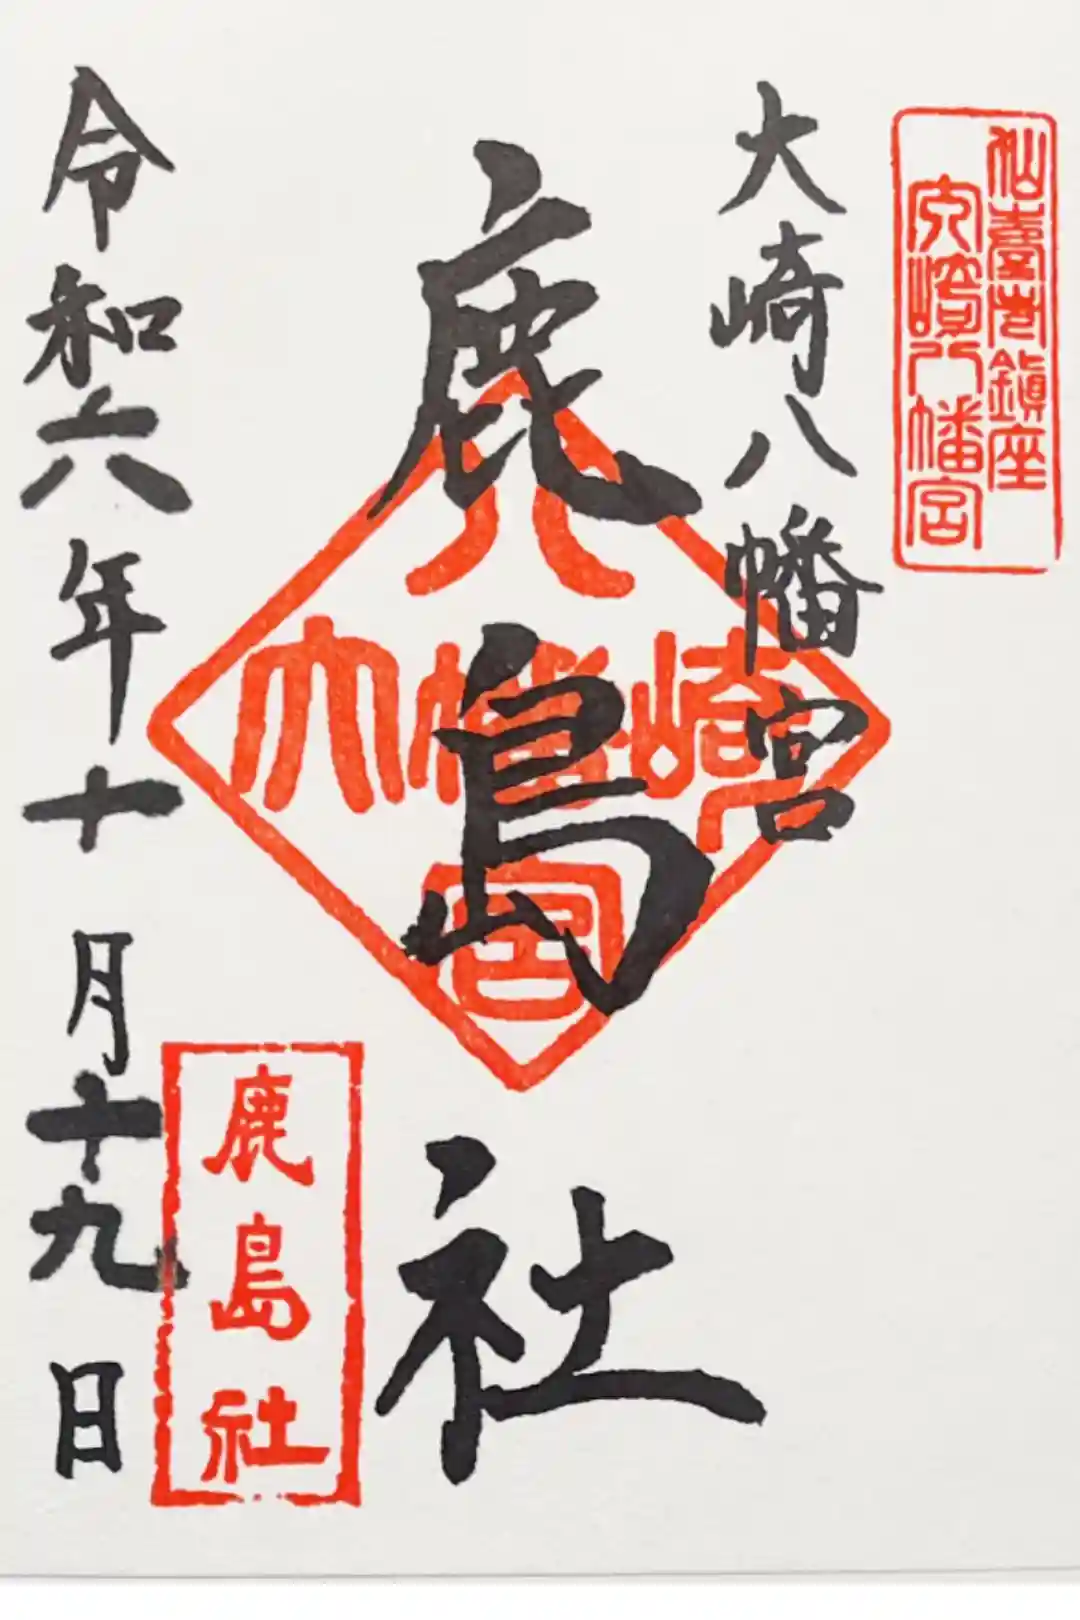 仙臺市鎮座
大崎八幡宮
大崎八幡宮
鹿島社
八
大幡崎
宮
鹿島社
令和六年十月十九日